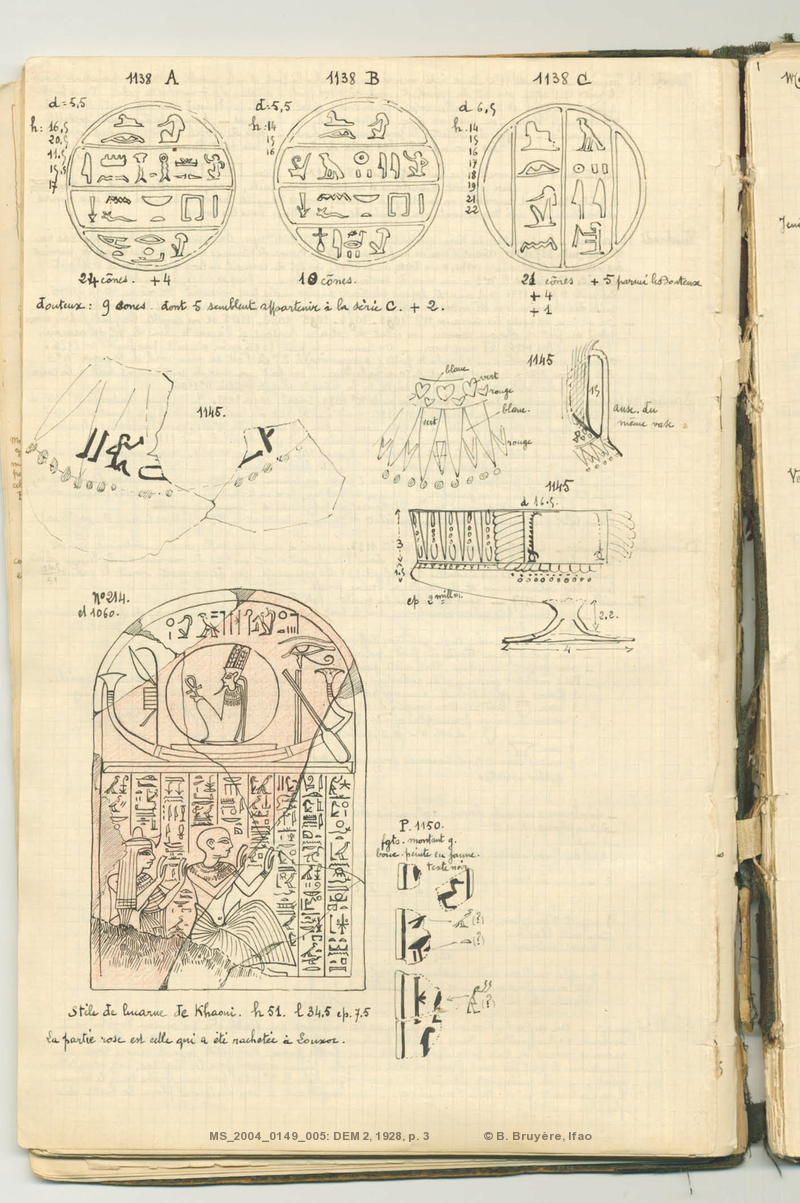 1138 A
1138 B
1138 C
d=5,5
d=5,5
d 6,5
h: 16,5
20,5
11,5
15,5
17
h:14
15
16
h.14
15
16
17
18
19
21
22
24 cônes. +4
10 cônes.
21 cônes + 5 parmi les douteux
+ 4
+ 1
douteux: 9 cones. dont 5 semblent appartenir à la série C. + 2.
1145.
blanc
vert
rouge
vert
blanc.
rouge
1145
15
anse. du
même vase
1145
d 16.5.
3
1.5
ep 2 millim.
2.2.
4
n° 214.
el 1060.
P. 1150.
fgts. montant g.
bois. peinte en jaune.
texte noir
(?)
(?)
(?)
Stèle de lucarne de Khaoui. h 51. l 34,5 ep. 7.5
La partie rose est celle qui a été rachetée à Louxor.
MS_2004_0149_005: DEM 2, 1928, p. 3 © B. Bruyère, Ifao